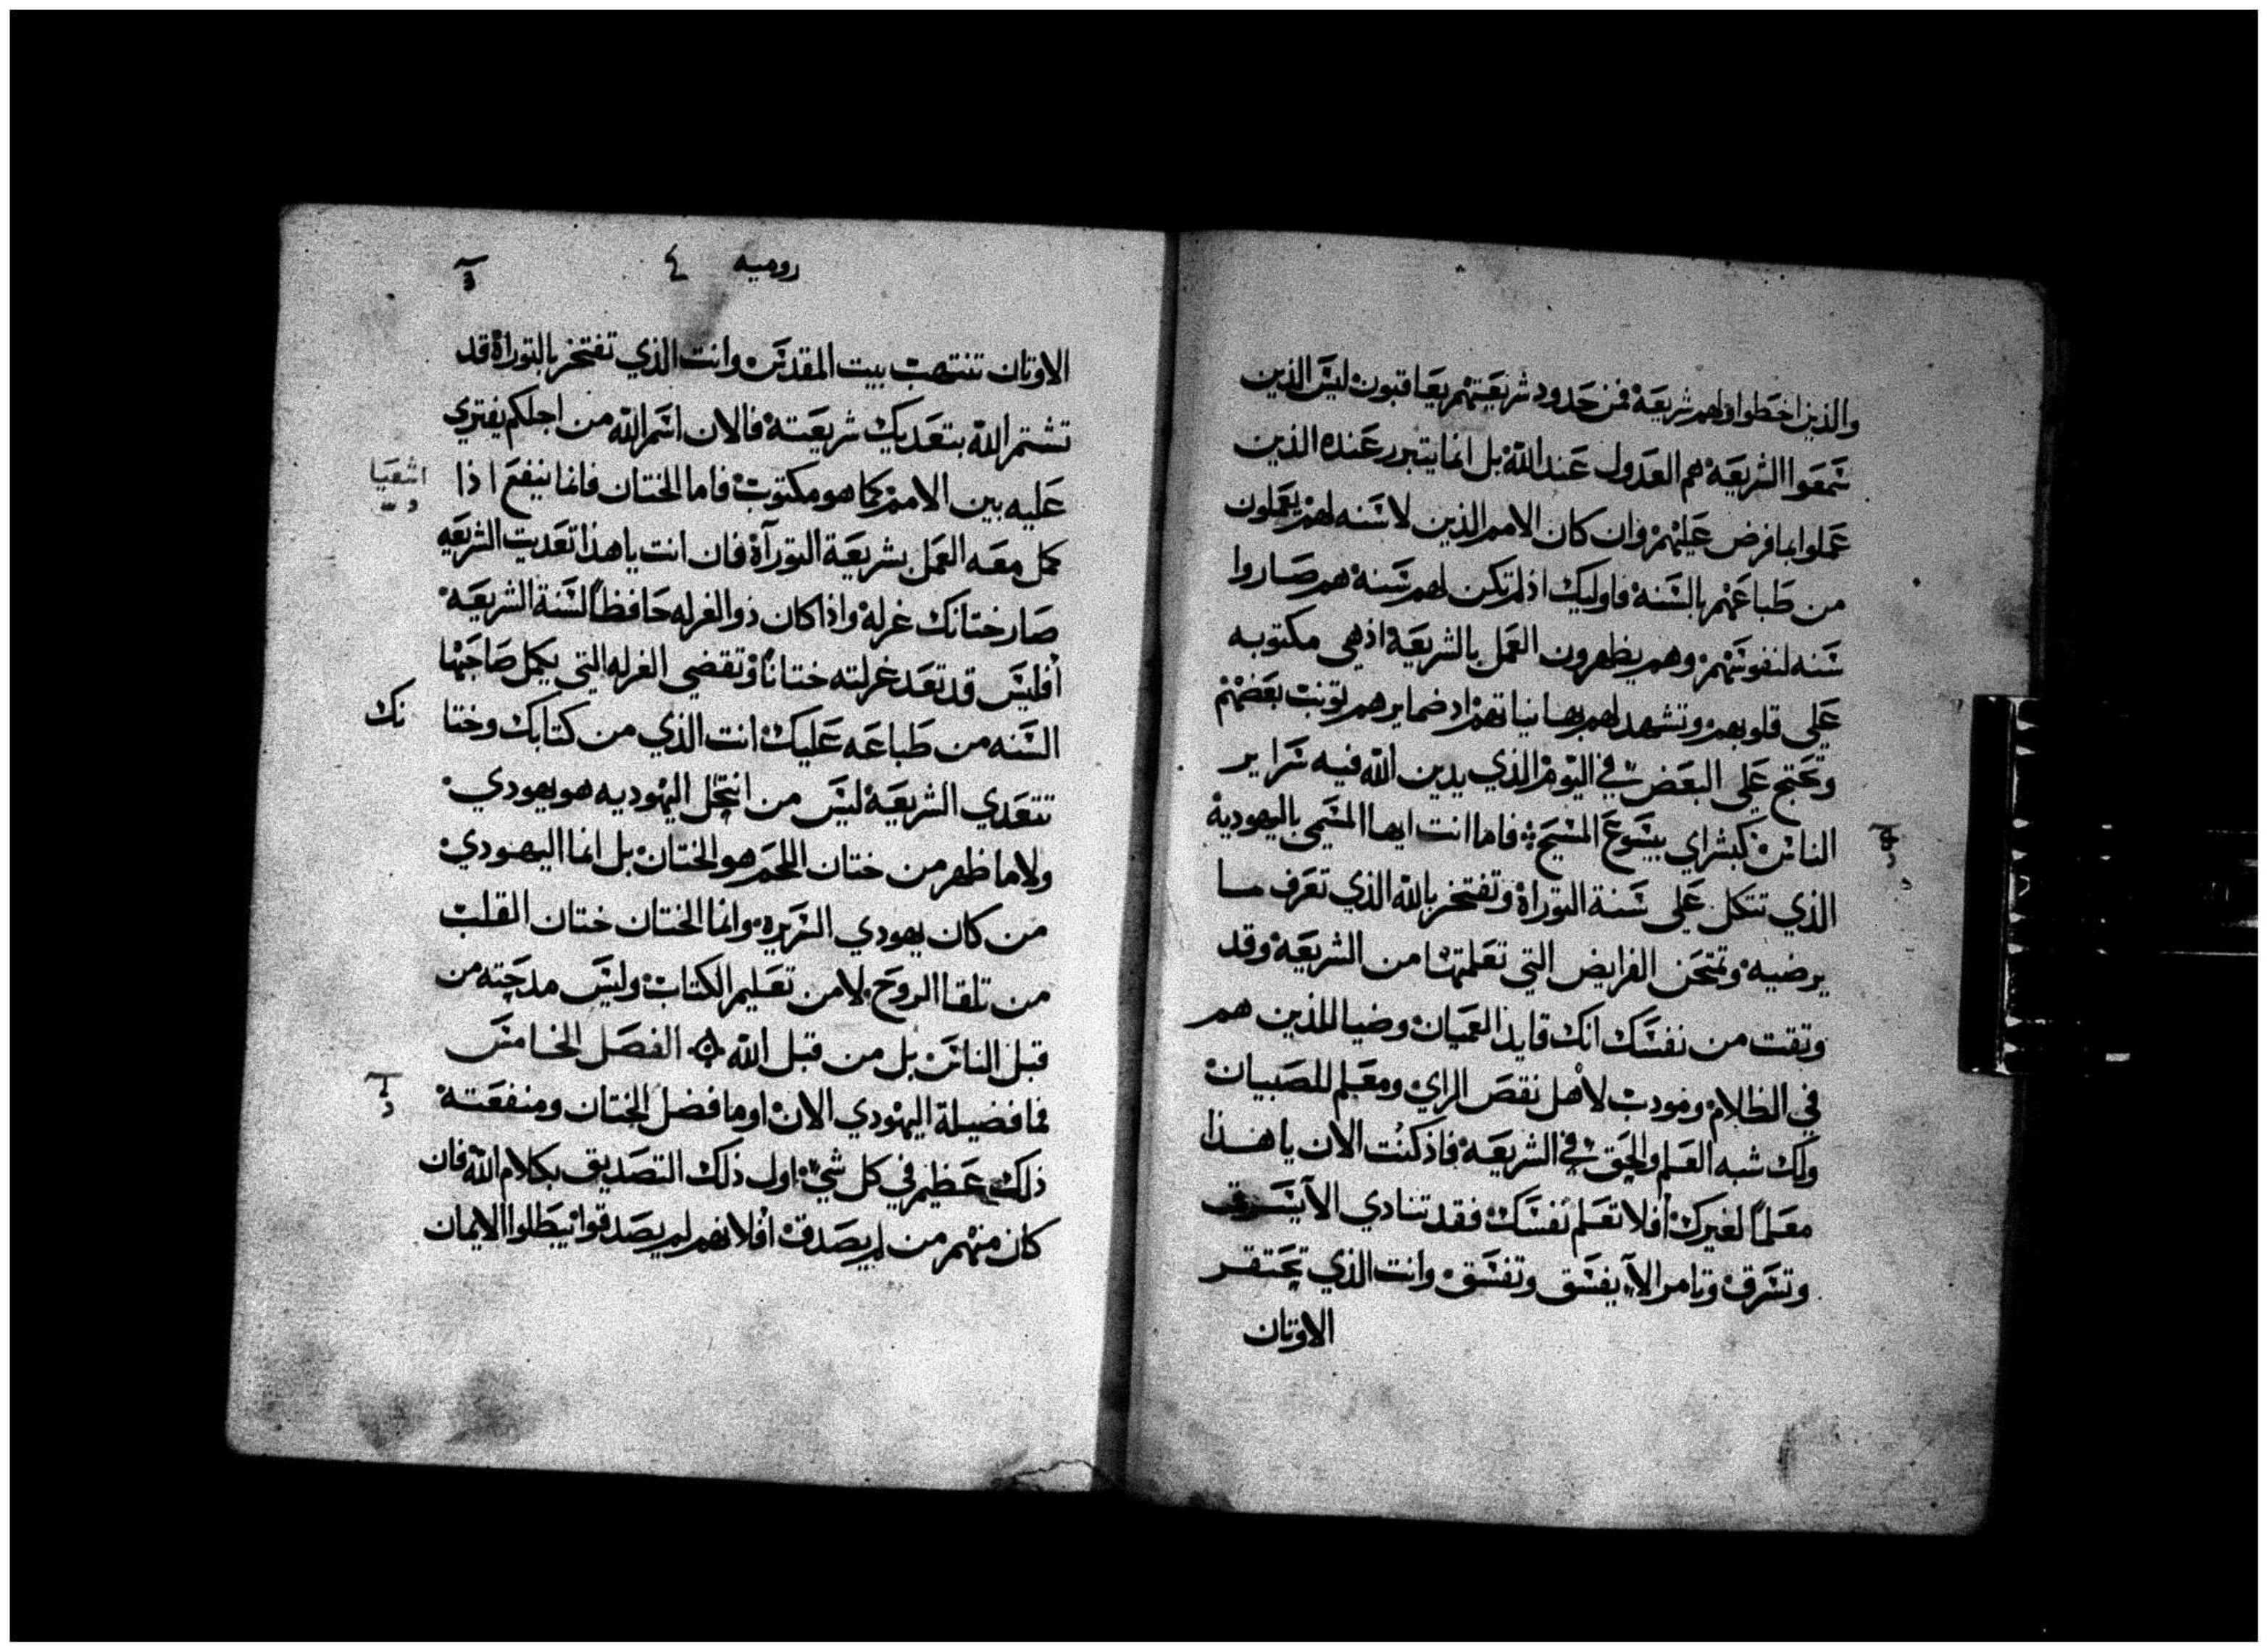 والذين اخطوا ولهم شريعة فمن حدود شريعتهم يعاقبون ليس الذين
سمعوا الشريعة هم العدول عند الله بل انما يتبرر عنده الذين
عملوا بما فرض عليهم وان كان الامم الذين لا سنه لهم يعملون
من طباعهم بالسنة فاوليك اذ لم تكن لهم سنة هم صاروا
سنه لنفوسهم وهم يظهرون العمل بالشريعة اذ هي مكتوبه
علي قلوبهم وتشهد لهم بها نياتهم اذ ضمايرهم توبت بعضهم
وتحتج علي البعض في اليوم الذي يدين الله فيه سراير
الناس كبشراي بيسوع المسيح فاما انت ايها المسمي باليهودية
الذي تتكل علي سنة التوراة وتفتخر بالله الذي تعرف مسا
يرضيه وتمتحن الفرايض التي تعلمتها من الشريعة وقد
وتقت من نفسك انك قايد العميان وضيا للذين هم
في الظلام ومودب لاهل نقص الراي ومعلم للصبيان
ولك شبه العلم والحق في الشريعة فاذ كنت الان يا هذا
معلما لغيرك افلا تعلم نفسك فقد تنادي الا يسرق
وتسرق وتامر الا يفسق وتفسق وانت الذي تحتقر
الاوتان
روميه ٤
الاوتان تنتهب بيت المقدس وانت الذي تفتخر بالتوراة قد
تشتم الله بتعديك شريعته فالان اسم الله من اجلكم يفتري
عليه بين الامم كما هو مكتوب فاما الختان فانما ينفع اذا
اشعيا
كمل معه العمل بشريعة التورآة فان انت يا هذا تعديت الشريعه
صار ختانك غرلة واذا كان ذو الغرله حافظا لسنة الشريعه
افليس قد تعد غرلته ختانا وتقضي الغرله التي يكمل صاحبها
السنه من طباعه عليك انت الذي من كتابك وختا نك
تتعدي الشريعة ليس من انتحل اليهوديه هو يهودي
ولا ما ظهر من ختان اللحم هو الختان بل انما اليهودي
من كان يهودي السريره وانما الختان ختان القلب
من تلقا الروح لا من تعليم الكتاب وليس مدحته من
قبل الناس بل من قبل الله الفصل الخامس
فما فضيلة اليهودي الان او ما فضل الختان ومنفعته
ذلك عظيم في كل شي اول ذلك التصديق بكلام الله فان
كان منهم من لم يصدق افلانهم لم يصدقوا يبطلوا الايمان